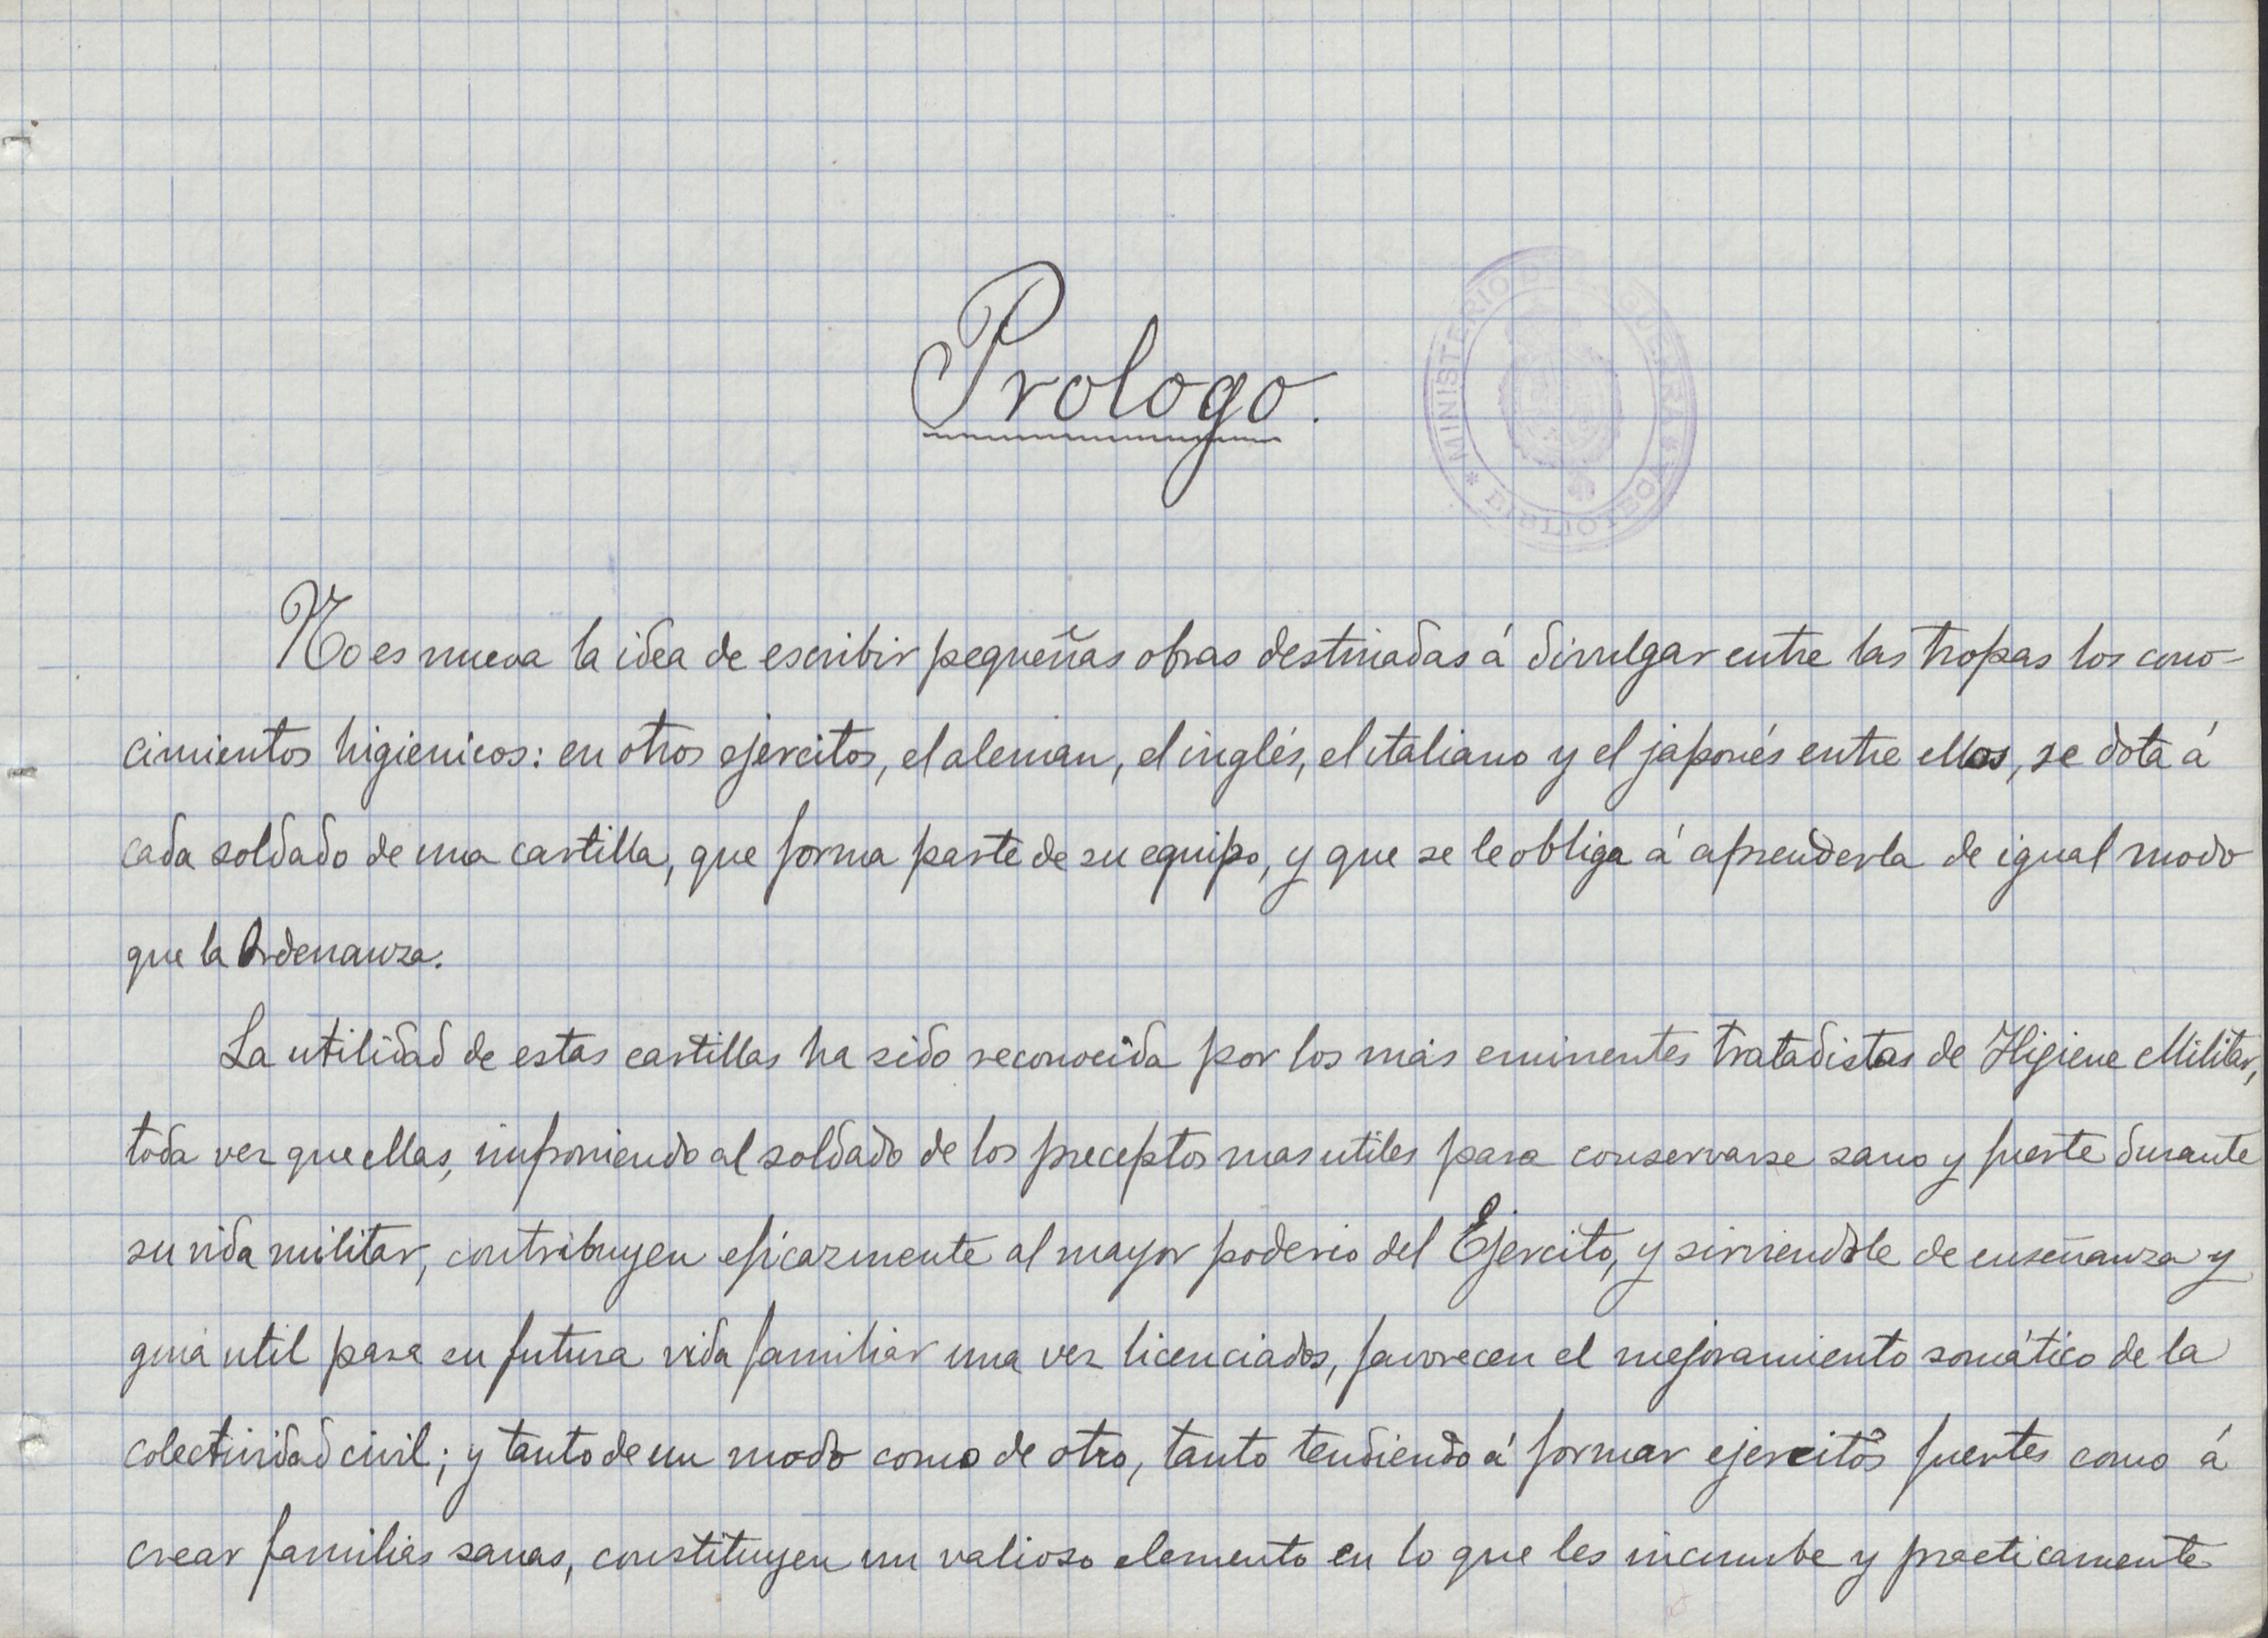 Prologo.
MINISTERIO DE LA GUERRA * BIBLIOTECA *
No es nueva la idea de escribir pequeñas obras destinadas á divulgar entre las tropas los cono-
cimientos higienicos: en otros ejercitos, el aleman, el inglés, el italiano y el japonés entre ellos, se dota á
cada soldado de una cartilla, que forma parte de su equipo, y que se le obliga á aprenderla de igual modo
que la Ordenanza.
La utilidad de estas cartillas ha sido reconocida por los más eminentes tratadistas de Higiene Militar,
toda vez que ellas, imponiendo al soldado de los preceptos mas utiles para conservarse sano y fuerte durante
su vida militar, contribuyen eficazmente al mayor poderio del Ejercito, y sirviendole de enseñanza y
guia util para su futura vida familiar una vez licenciados, favorecen el mejoramiento somático de la
colectividad civil; y tanto de un modo como de otro, tanto tendiendo á formar ejercitos fuertes como á
crear familias sanas, constituyen un valioso elemento en lo que les incumbe y practicamente